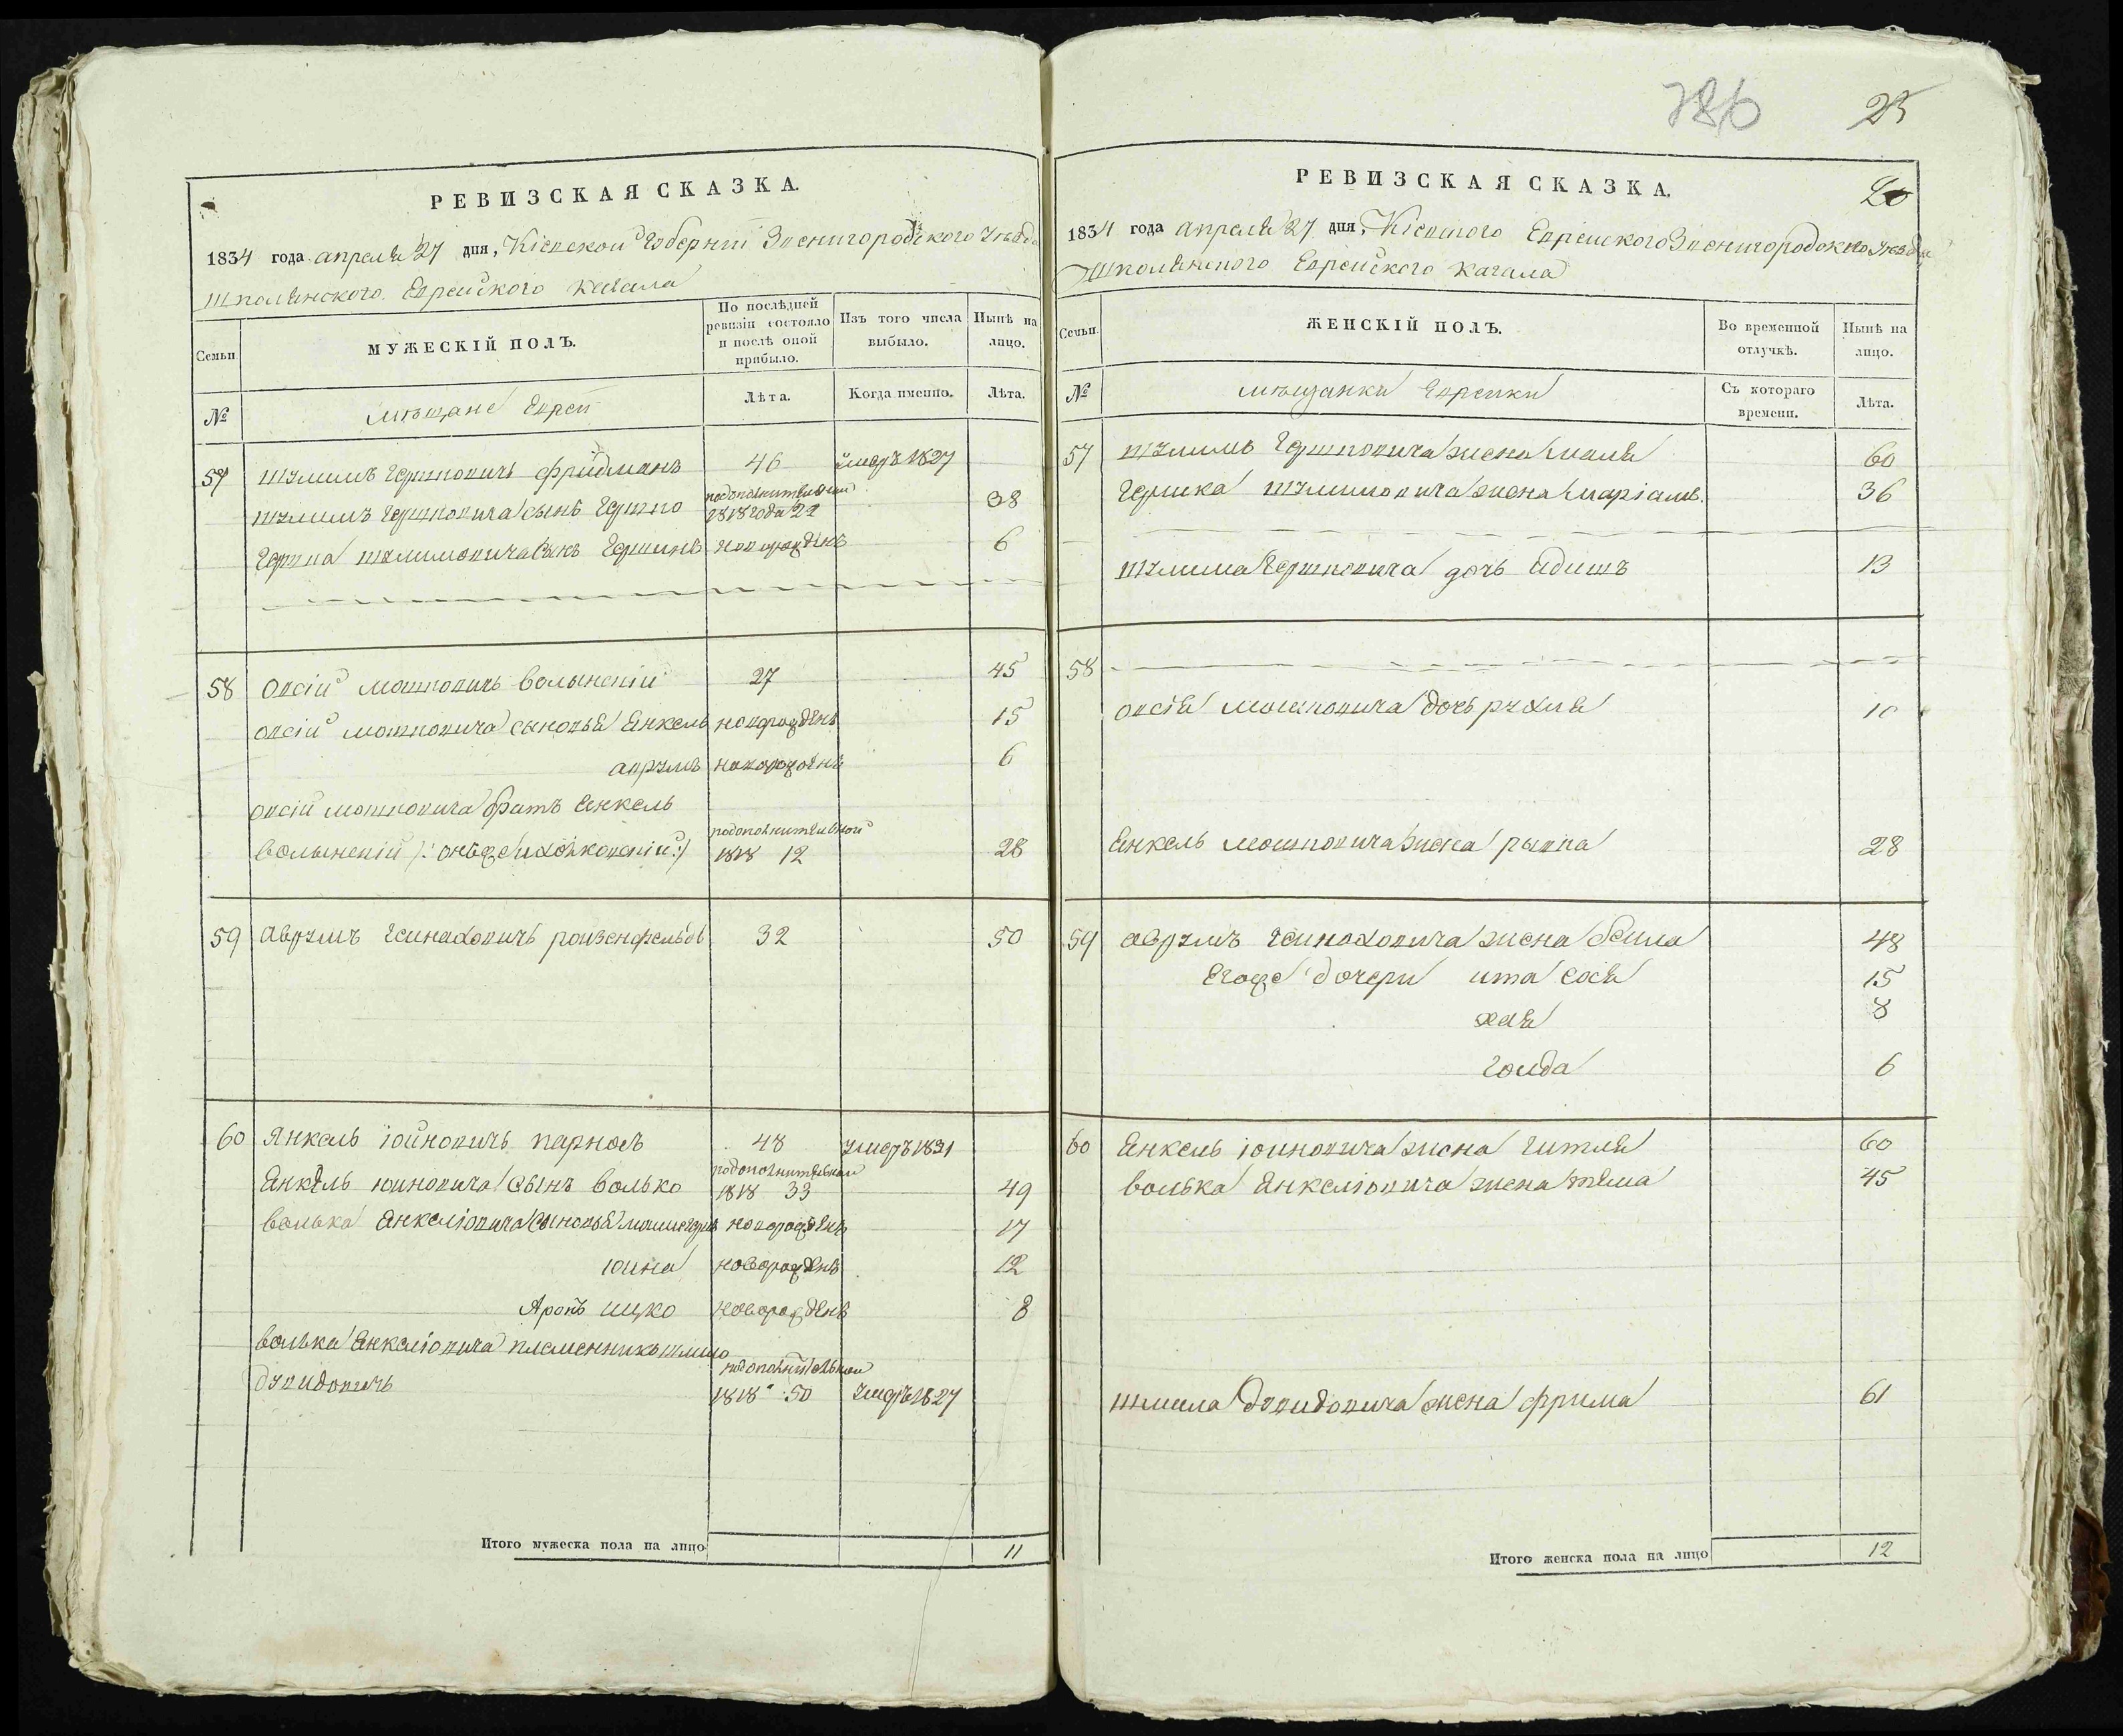 РЕВИЗСКАЯ СКАЗКА.
1834 года апреля 27 дня, Кіевской Губерніи Звенигородского Уезда
Шполянского Еврейского Кагала
Семьи. МУЖЕСКІЙ ПОЛЪ. По послѣдней ревизіи состояло и послѣ оной прибыло. Изъ того числа выбыло. Нынѣ на лицо.
№ мѣщане Евреи Лѣта. Когда именно. Лѣта.
57 Гершковичъ Фридманъ 46 умеръ 1827
Гершковича сынъ Гершко подополнительной 1818 года 22 38
сынъ новорожденъ 6
58 Овсій Мошковичъ Волынскій 27 45
Овсій Мошковича сыновья Янкель новорожденъ 15
Аврумъ новорожденъ 6
Овсій Мошковича братъ Янкель
Волынскій подополнительной 1818 12 28
59 Аврумъ Гейнаховичъ Ройзенфельдъ 32 50
60 Янкель Іойновичъ 48 умеръ 1831
Янкель Іойновича сынъ Волько подополнительной 1818 33 49
Волька Янкеліовича сыновья новорожденъ 17
Іойна новорожденъ 12
Аронъ Ицко новорожденъ 8
Волька Янкеліовича племенникъ Шмило
Дувидовичъ подополнительной 1818 50 умеръ 1827
Итого мужеска пола на лицо 11
786 25
РЕВИЗСКАЯ СКАЗКА.
1834 года апреля 27 дня, Кіевского Еврейского Звенигородского Уезда
Шполянского Еврейского Кагала
Семьи. ЖЕНСКІЙ ПОЛЪ. Во временной отлучкѣ. Нынѣ на лицо.
№ мѣщанки Еврейки Съ котораго времени. Лѣта.
57 Гершковича жена Маля 60
жена Маріамъ 36
Гершковича дочь 13
58
Овсія Мошковича дочь Рухля 10
Янкель Мошковича жена Рывка 28
59 Аврумъ Гейнаховича жена Бейла 48
Егоже дочери Ита Сося 15
Хая 8
Голда 6
60 Янкель Іойновича жена Гитля 60
Волька Янкеліовича жена 45
Шмила Дувидовича жена Фрима 61
Итого женска пола на лицо 12